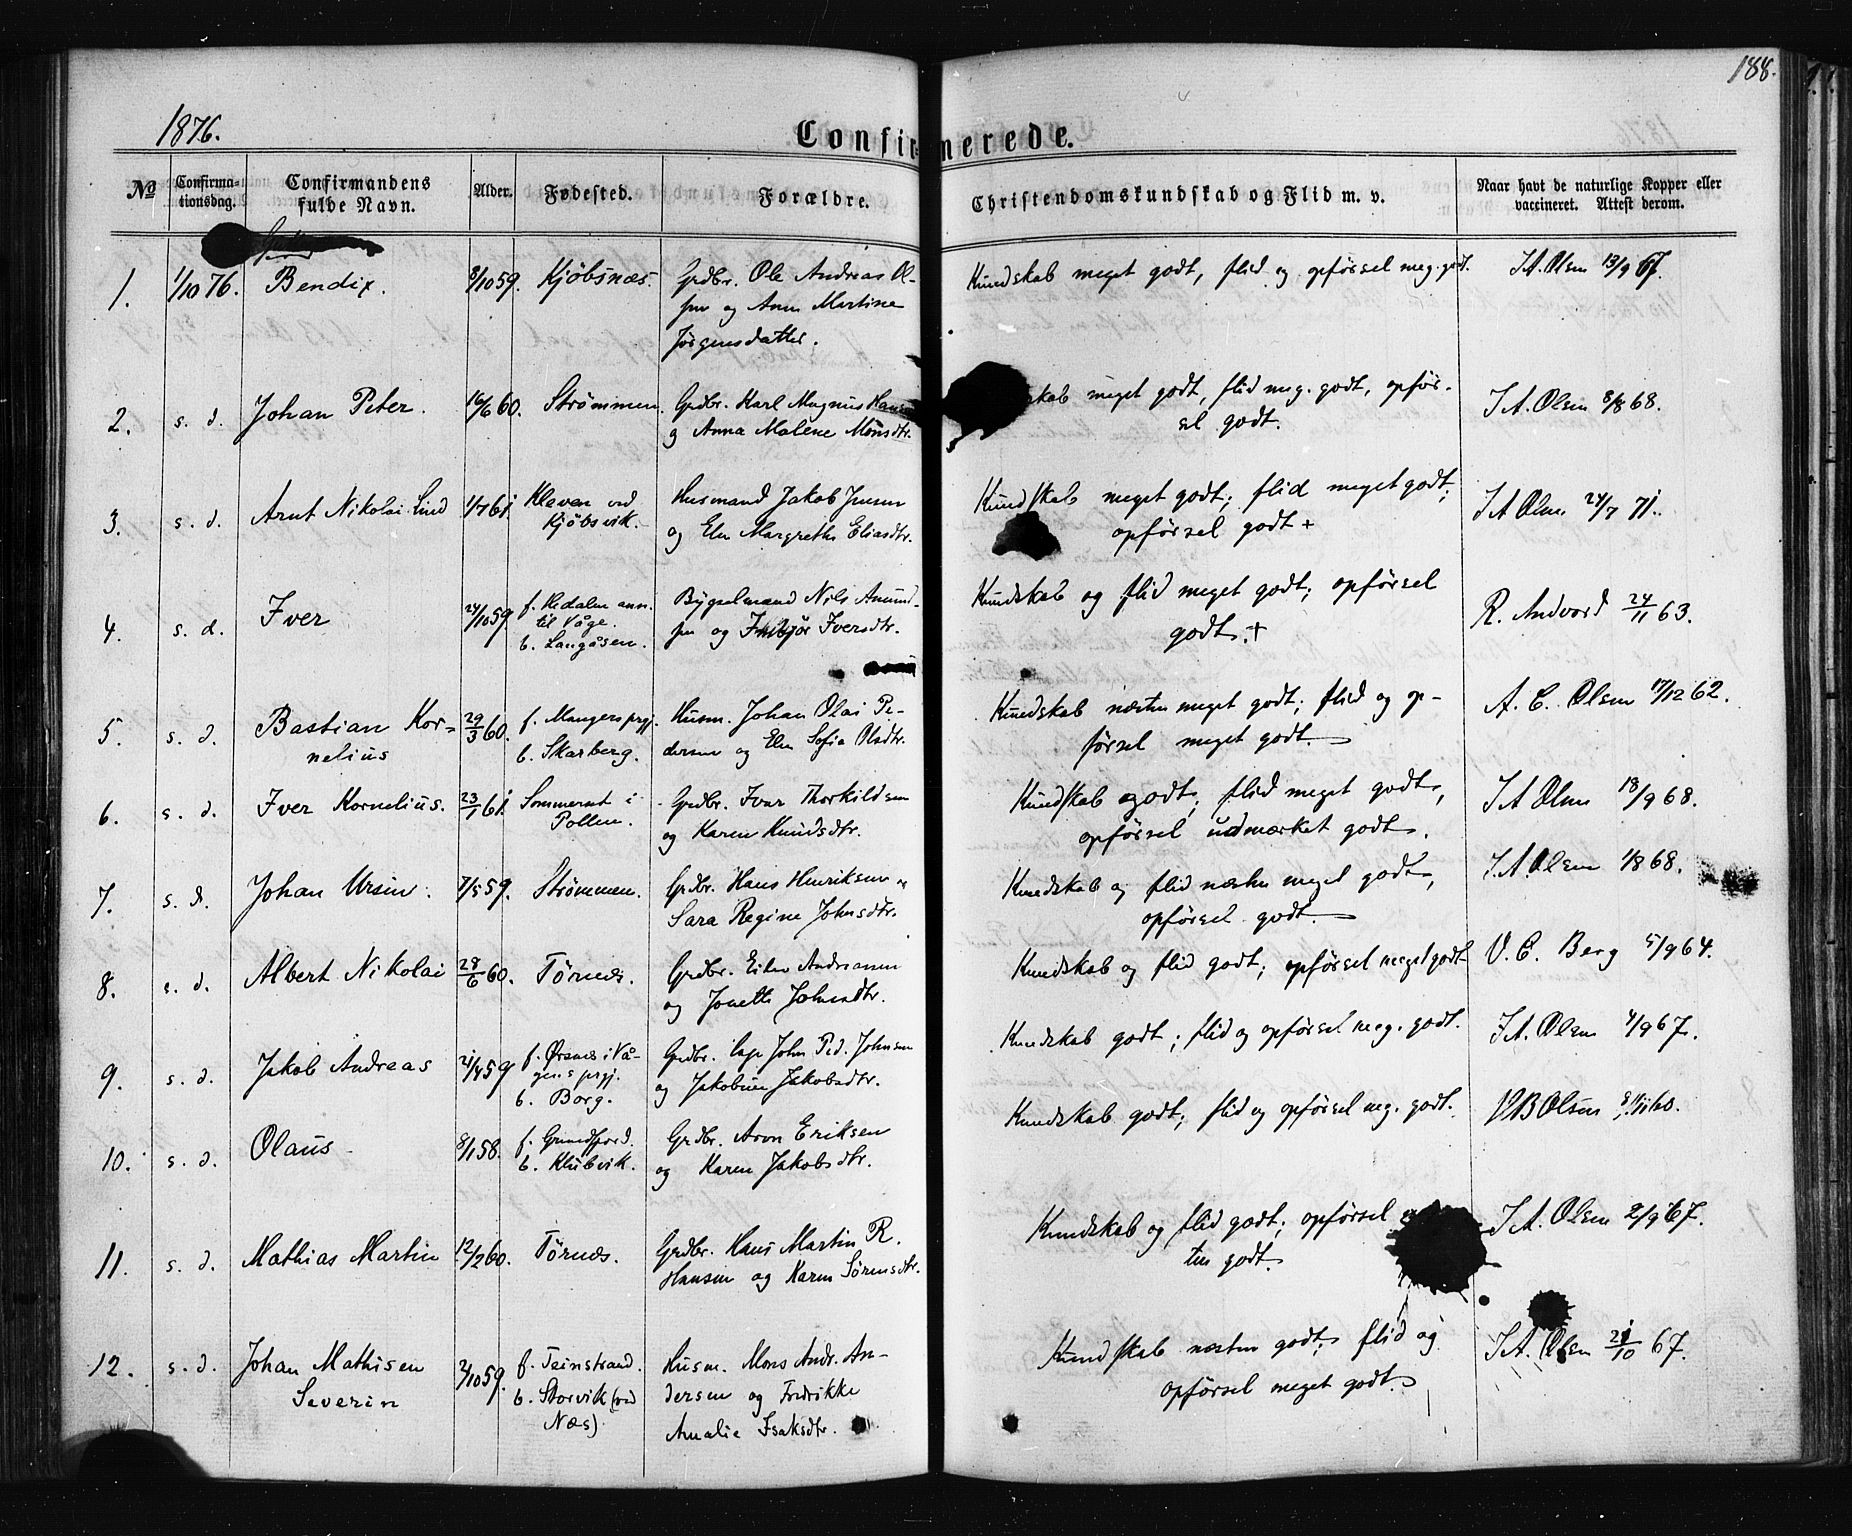 188.
1876.
Confirmerede.
No
Confirmationsdag.
Confirmandens fulde Navn.
Alder.
Fødested.
Forældre.
Christendomskundskab og Flid m. v.
Naar havt de naturlige Kopper eller vaccineret. Attest derom.
1. 1/10 76. Bendix. 8/10 59. Kjöbsnæs. Grdbr. Ole Andreas Ol- Kundskab meget godt, flid og opförsel meg. godt. J.A. Olsen 13/9 67.
sen og Anne Martine
Jörgensdatter.
2. s. d. Johan Peter. 16/6 60. Strömmen. Grdbr. Karl Magnus Hansen skab meget godt, flid meg. godt, opför- J.A. Olsen 8/8 68.
og Anna Malene Monsdtr. sel godt.
3. s. d. Arnt Nikolai Lind 1/7 61. Kleven ved Husmand Jakob Jensen Kundskab meget godt; flid meget godt; J.A Olsen 24/7 71.
Kjöbsvik. og Elen Margrethe Eliasdtr. opförsel godt +
4. s. d. Iver 24/10 59. f. Hedalen ann. Bygselmand Nils Amund- Kundskab og flid meget godt; opförsel R. Andvord 24/11 63.
til Våge. sen og Iversdtr. godt. +
b. Langåsen.
5. s. d. Bastian Kor- 29/3 60. f. Mangers prgj. Husm. Johan Olai Pe- Kundskab næsten meget godt; flid og op- A. C. Olsen 17/12 62.
nelius b. Skarberg. dersen og Elen Sofia Olsdtr. försel meget godt.
6. s. d. Iver Kornelius. 23/1 61. Sommerset i Grdbr. Ivar Thorkildsen Kundskab godt; flid meget godt, J A Olsen 18/9 68.
Pollen. og Karen Knudsdtr. opförsel udmærket godt.
7. s. d. Johan Ursin. 7/5 59. Strömmen. Grdbr. Hans Henriksen og Kundskab og flid næsten meget godt, J.A. Olsen 1/8 68.
Sara Regine Johnsdtr. opförsel godt.
8. s. d. Albert Nikolai 28/6 60. Törnes. Grdbr. Andreassen Kundskab og flid godt; opförsel meget godt V. C. Berg 5/9 64.
og Jonette Johnsdtr.
9. s. d. Jakob Andreas 21/4 59 f. Örsnes i Vå- Grdbr. John Ped. Johnsen Kundskab godt; flid og opförsel meg. godt. J.A. Olsen 4/9 67.
gens prgj. og Jakobine Jakobsdtr.
b. Borg.
10. s. d. Olaus 8/1 58. f. Grundfjord. Grdbr. Aron Eriksen Kundskab godt; flid og opförsel meg. godt. Olsen
b. Klubvik. og Karen Jakobsdtr.
11. s. d. Mathias Martin 12/2 60. Törnes. Grdbr. Hans Martin R. Kundskab og flid godt; opförsel J.A. Olsen 2/9 67.
Hansen og Karen Sörensdtr. ten godt.
12. s. d. Johan Mathisen 2/10 59. f. Teinstrand. Husm. Mons Andr. An- Kundskab næsten godt; flid og J.A. Olsen 21/10 67.
Severin b. Storvik (ved dersen og Fredrikke opförsel meget godt.
Næs). Amalie Isaksdtr.